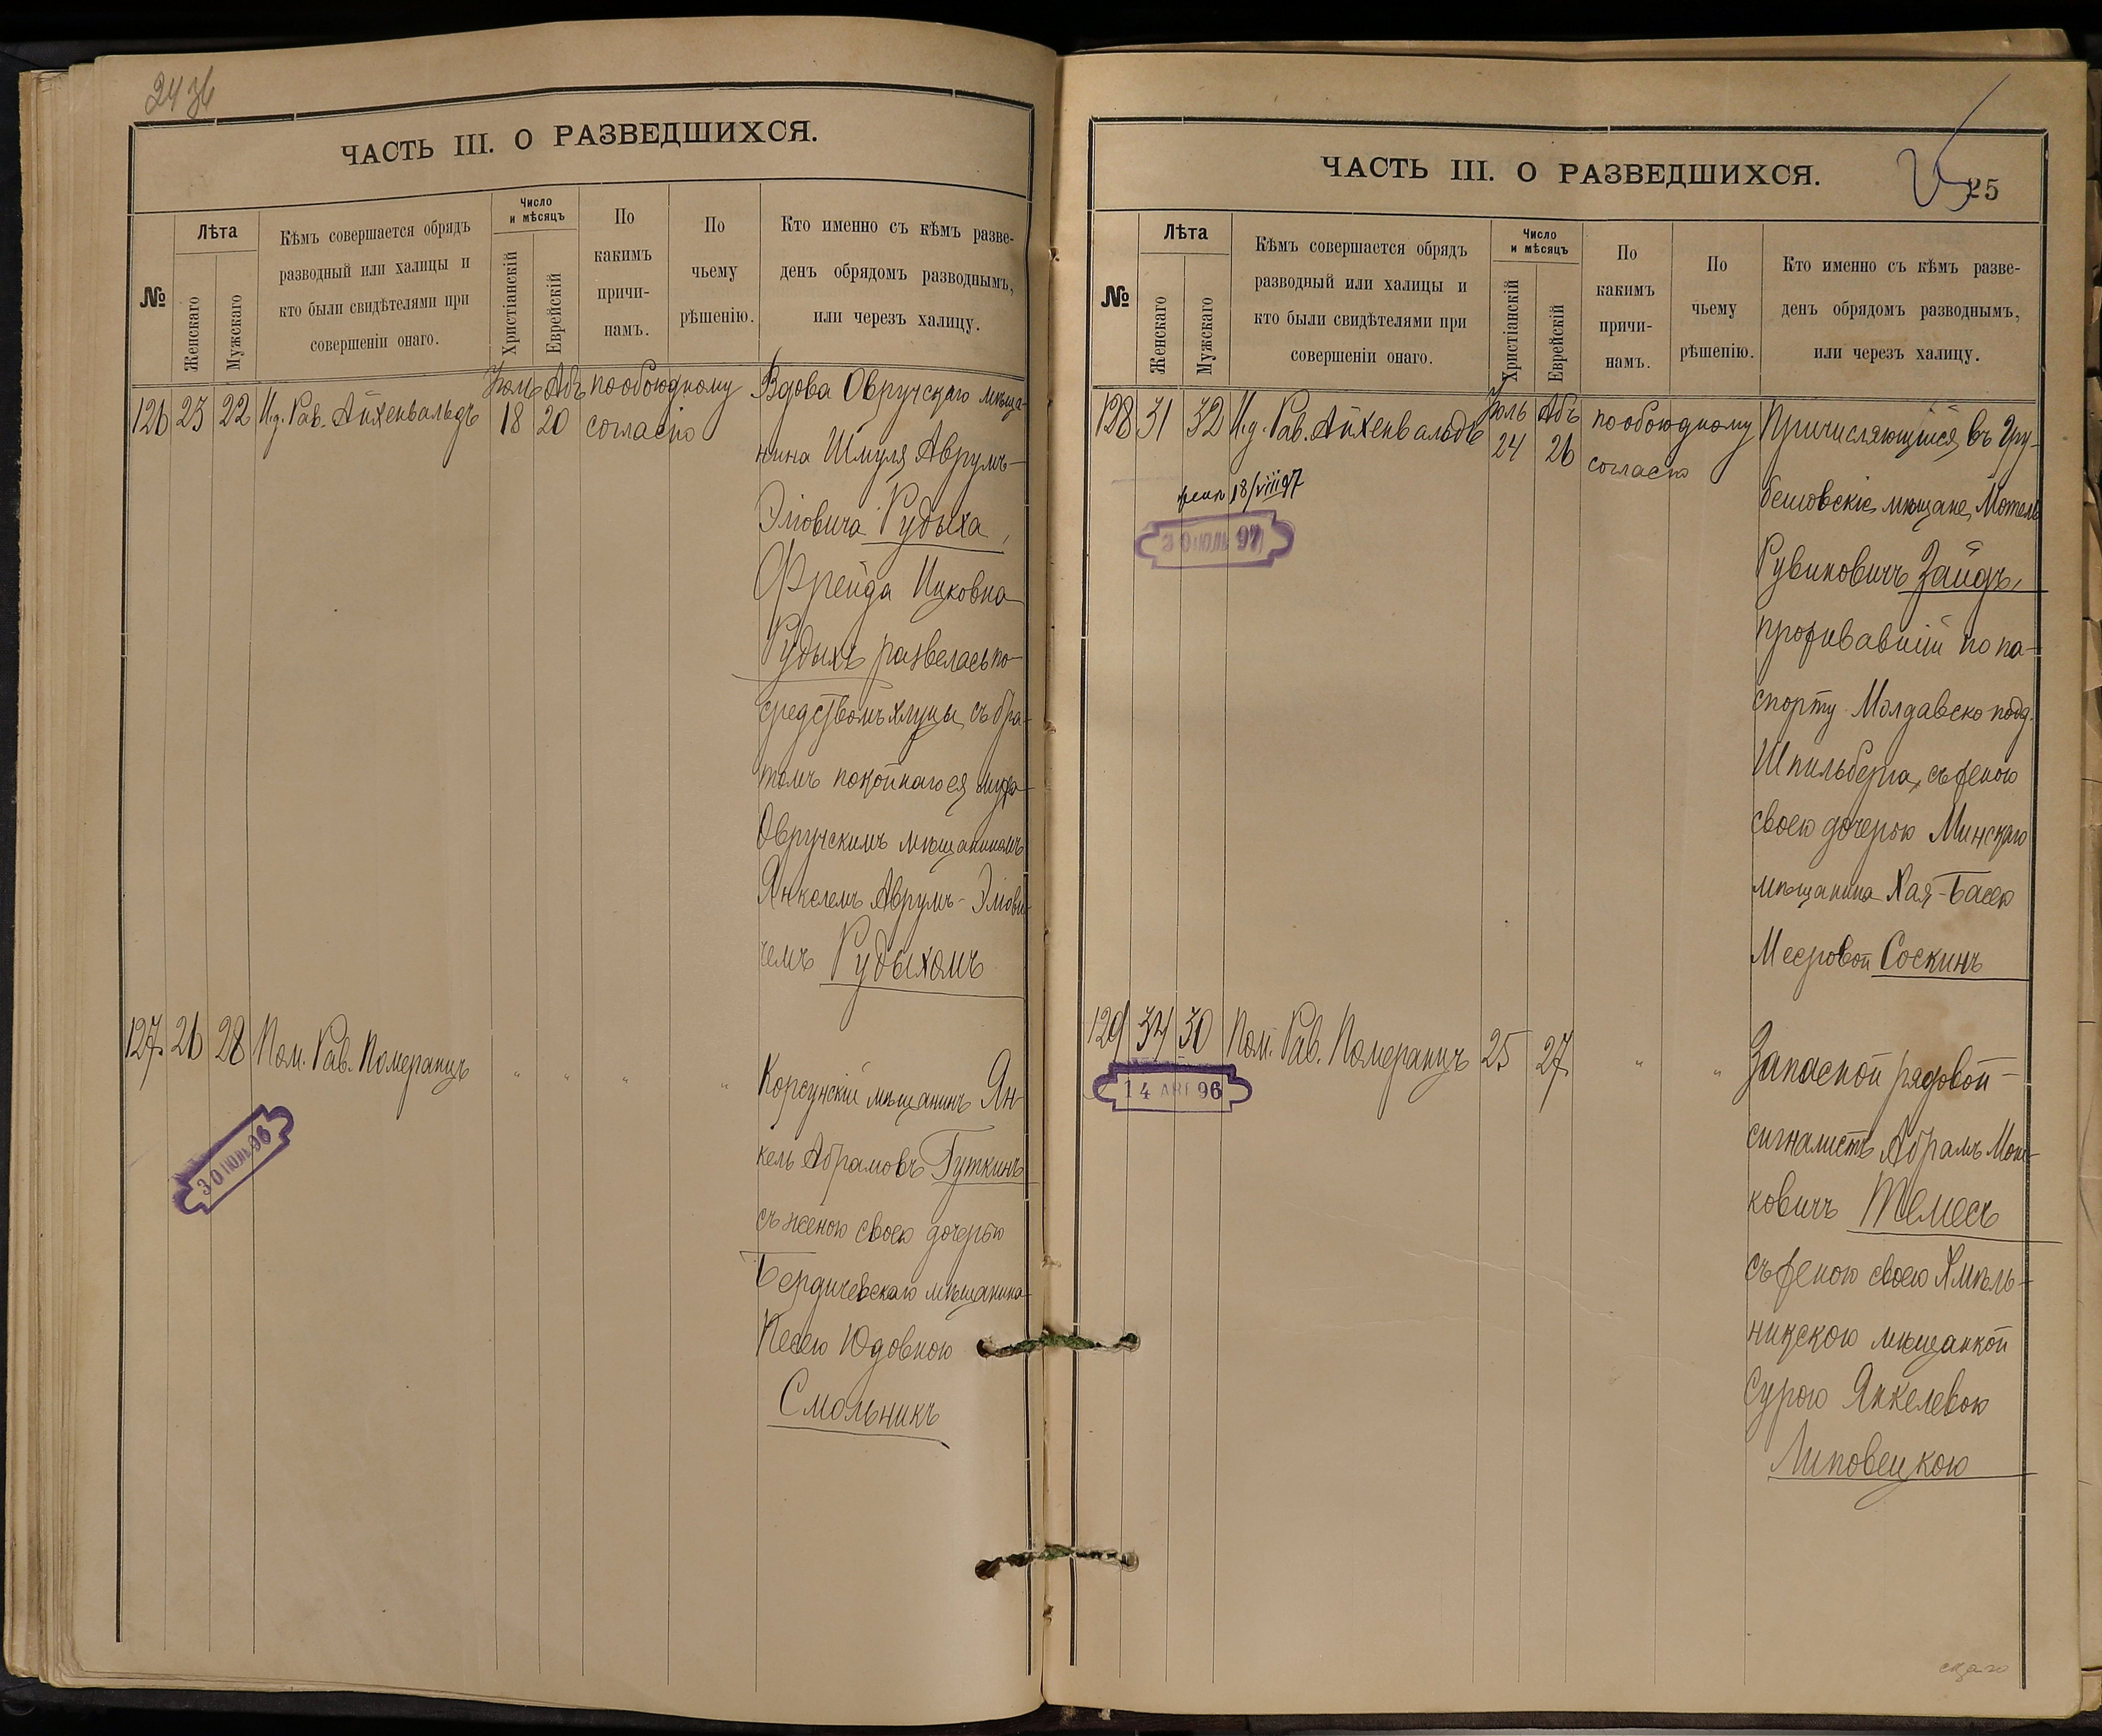 24
ЧАСТЬ III. О РАЗВЕДШИХСЯ.
№
Лѣта
Женскаго
Мужскаго
Кѣмъ совершается обрядъ
разводный или халицы и
кто были свидѣтелями при
совершеніи онаго.
Число
и мѣсяцъ
Христіанскій
Еврейскій
По
какимъ
причи-
намъ.
По
чьему
рѣшенію.
Кто именно съ кѣмъ разве-
денъ обрядомъ разводнымъ,
или черезъ халицу.
126 23 22 И.д. Рав. Айхенвальдъ
Іюль 18
Абъ 20
по обоюдному
согласію
Вдова Овручскаго мѣща-
нина Шмуля Аврумъ-
Эліовича Рудыха,
Фрейда Ицковна
Рудыхъ развелась по-
средствомъ хлуцы, съ бра-
томъ покойнаго ея мужа
Овручскимъ мѣщаниномъ
Янкелемъ Аврумъ-Эліови-
чемъ Рудыхомъ
127. 26 28 Пом. Рав. Померанцъ " " " "
30 ІЮЛЬ 96
Корсунскій мѣщанинъ Ян-
кель Абрамовъ Гуткинъ
съ женою своею дочерью
Бердичевскаго мѣщанина
Песею Юдовною
Смольникъ
ЧАСТЬ III. О РАЗВЕДШИХСЯ.
25
25
№
Лѣта
Женскаго
Мужскаго
Кѣмъ совершается обрядъ
разводный или халицы и
кто были свидѣтелями при
совершеніи онаго.
Число
и мѣсяцъ
Христіанскій
Еврейскій
По
какимъ
причи-
намъ.
По
чьему
рѣшенію.
Кто именно съ кѣмъ разве-
денъ обрядомъ разводнымъ,
или черезъ халицу.
128 31 32 И.д. Рав. Айхенвальдъ
Іюль 24
Абъ 26
по обоюдному
согласію
18/VIII 97
30 ІЮЛЬ 97
Причисляющійся въ Гру-
бешовскіе мѣщане, Мотель
Рувиновичъ Зайдъ,
проживавшій по па-
спорту Молдавско-подд.
Шпильберга, съ женою
своею дочерью Минскаго
мѣщанина Хая-Басею
Мееровой Соскинъ
129 34 30 Пом. Рав. Померанцъ 25 27. " "
14 АВГ 96
Запасной рядовой-
сигналистъ Абрамъ Мош-
ковичъ Темесъ
съ женою своею Хмѣль-
никскою мѣщанкой
Сурою Янкелевою
Липовецкою